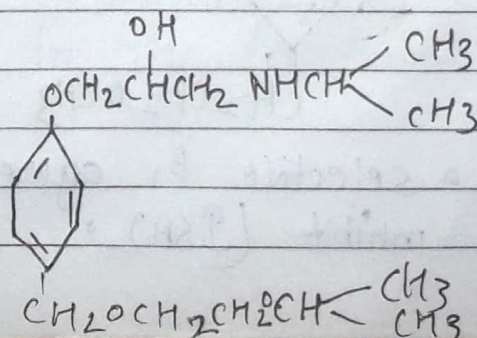 OH
CH3
OCH2CHCH2 NHCH
CH3
CH2OCH2CH2OCH
CH3
CH3